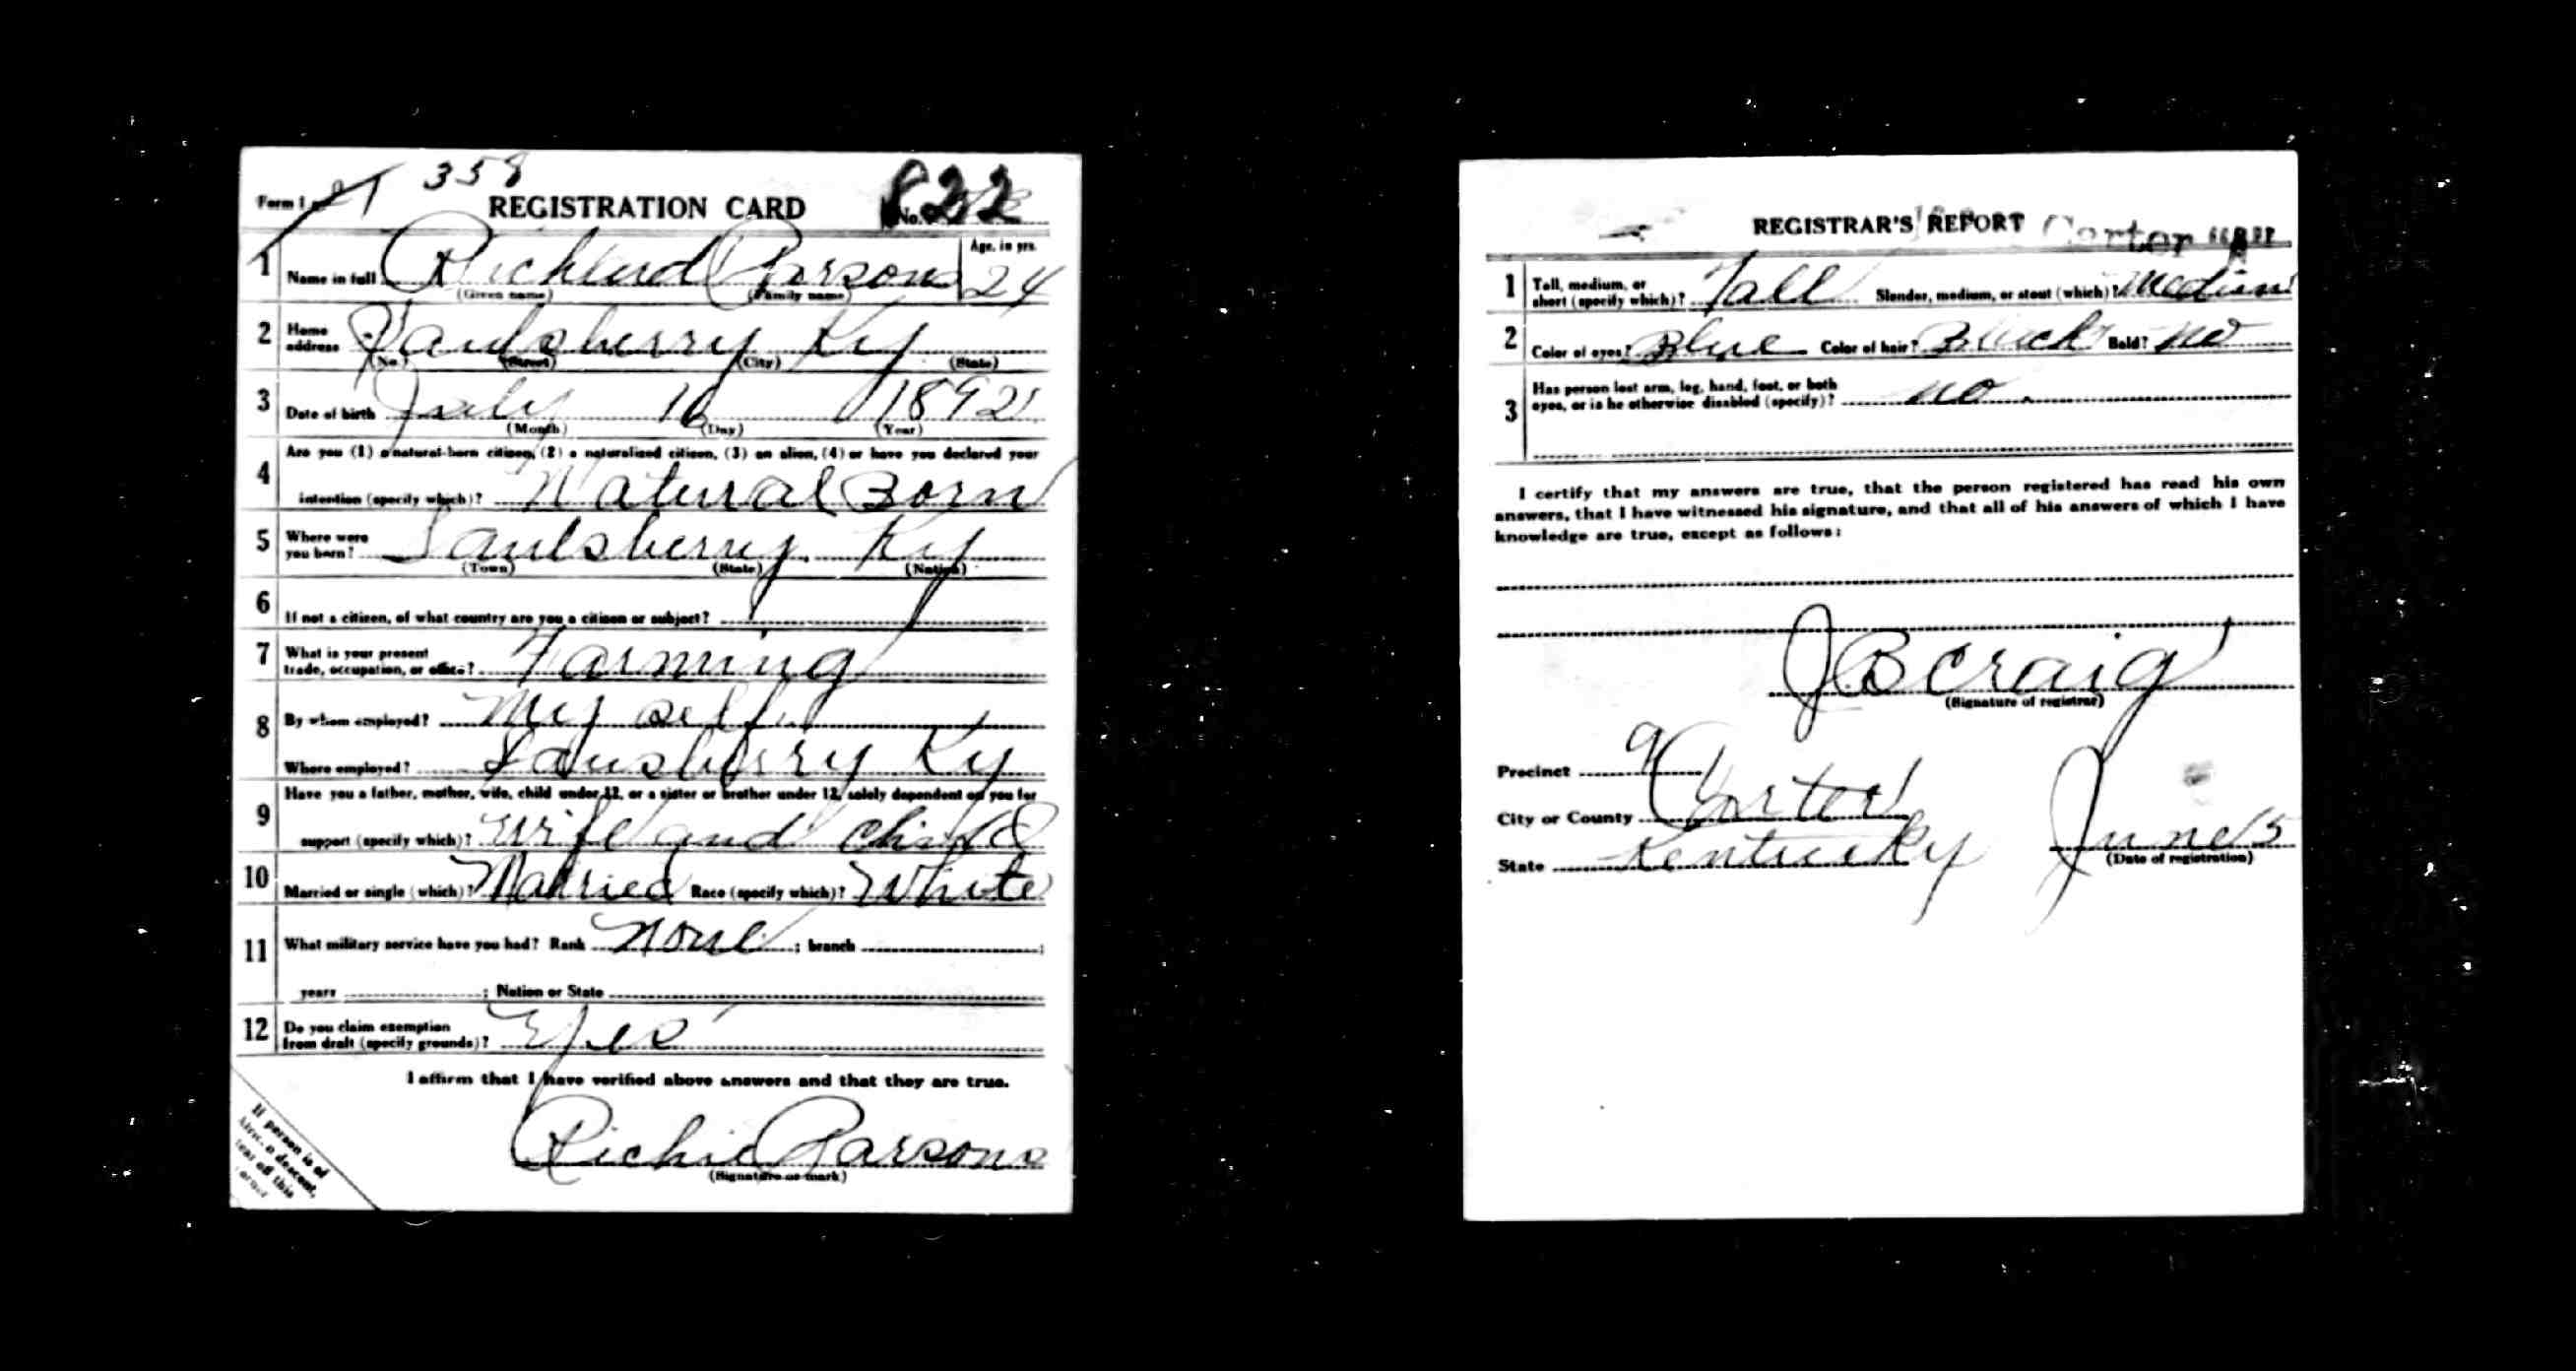 Form 1 358 REGISTRATION CARD No. 822
1 Name in full Richlend Parsons Age, in yrs. 24
(Given name) (Family name)
2 Home address Saulsberry Ky
(No.) (Street) (City) (State)
3 Date of birth July 16 1892
(Month) (Day) (Year)
Are you (1) a natural-born citizen, (2) a naturalized citizen, (3) an alien, (4) or have you declared your
4 intention (specify which)? Natural Born
5 Where were you born? Saulsberry, Ky
(Town) (State) (Nation)
6 If not a citizen, of what country are you a citizen or subject?
7 What is your present trade, occupation, or office? Farming
8 By whom employed? My self
Where employed? Sausberry Ky
Have you a father, mother, wife, child under 12, or a sister or brother under 12, solely dependent on you for
9 support (specify which)? Wife and child
10 Married or single (which)? Married Race (specify which)? White
11 What military service have you had? Rank None ; branch ;
years ; Nation or State
12 Do you claim exemption from draft (specify grounds)? Yes
I affirm that I have verified above answers and that they are true.
Richie Parsons
(Signature or mark)
If person is of
descent,
tear off this
corner
REGISTRAR'S REPORT Carter
1 Tall, medium, or short (specify which)? Tall Slender, medium, or stout (which)? Medium
2 Color of eyes? Blue Color of hair? Black Bald? No
3 Has person lost arm, leg, hand, foot, or both eyes, or is he otherwise disabled (specify)? no.
I certify that my answers are true, that the person registered has read his own
answers, that I have witnessed his signature, and that all of his answers of which I have
knowledge are true, except as follows:
J B Craig
(Signature of registrar)
Precinct 9
City or County Carter
State Kentucky June 5
(Date of registration)